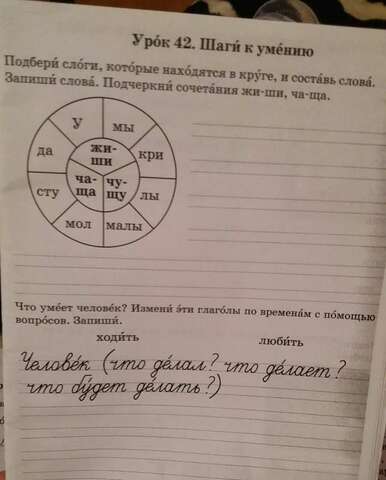 Уро́к 42. Шаги́ к уме́нию
Подбери́ сло́ги, кото́рые нахо́дятся в кру́ге, и соста́вь слова́.
Запиши́ слова́. Подчеркни́ сочета́ния жи-ши, ча-ща.
У
мы
кри
лы
малы
мол
сту
да
жи-
ши
ча-
ща
чу-
щу
Что уме́ет челове́к? Измени́ э́ти глаго́лы по времена́м с по́мощью
вопро́сов. Запиши́.
ходи́ть люби́ть
Челове́к (что де́лал? что де́лает?
что бу́дет де́лать?)